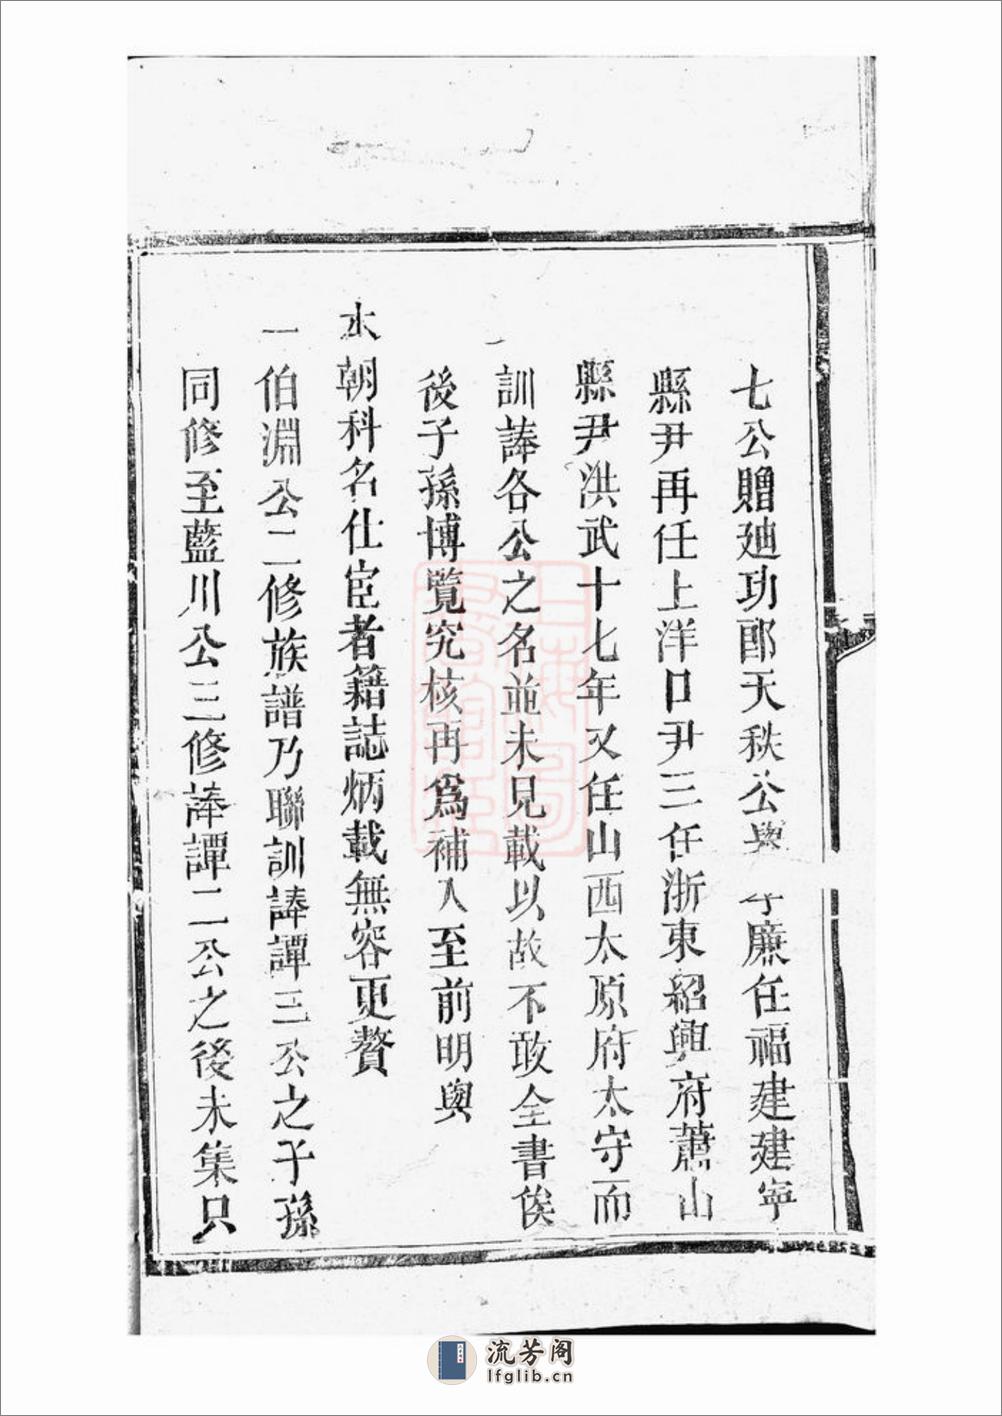 七公贈廸功郎天秩公與廉任福建建寧
縣尹再任上洋口尹三任浙東紹興府蕭山
縣尹洪武十七年又任山西太原府太守而
訓諱各公之名並未見載以故不敢全書俟
後子孫博覽究核再爲補入至前明與
本朝科名仕宦者籍誌炳載無容更贅
一伯淵公二修族譜乃聯訓諱譚三公之子孫
同修至藍川公三修諱譚二公之後未集只
流芳阁
lfglib.cn